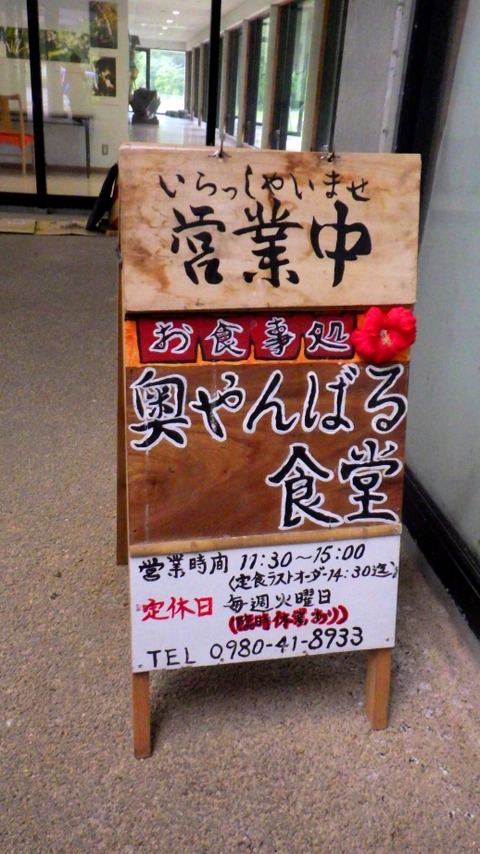 いらっしゃいませ
営業中
お食事処
奥やんばる
食堂
営業時間 11:30～15:00
(定食ラストオーダー14:30迄)
定休日 毎週火曜日
(臨時休業あり)
TEL 0980-41-8933